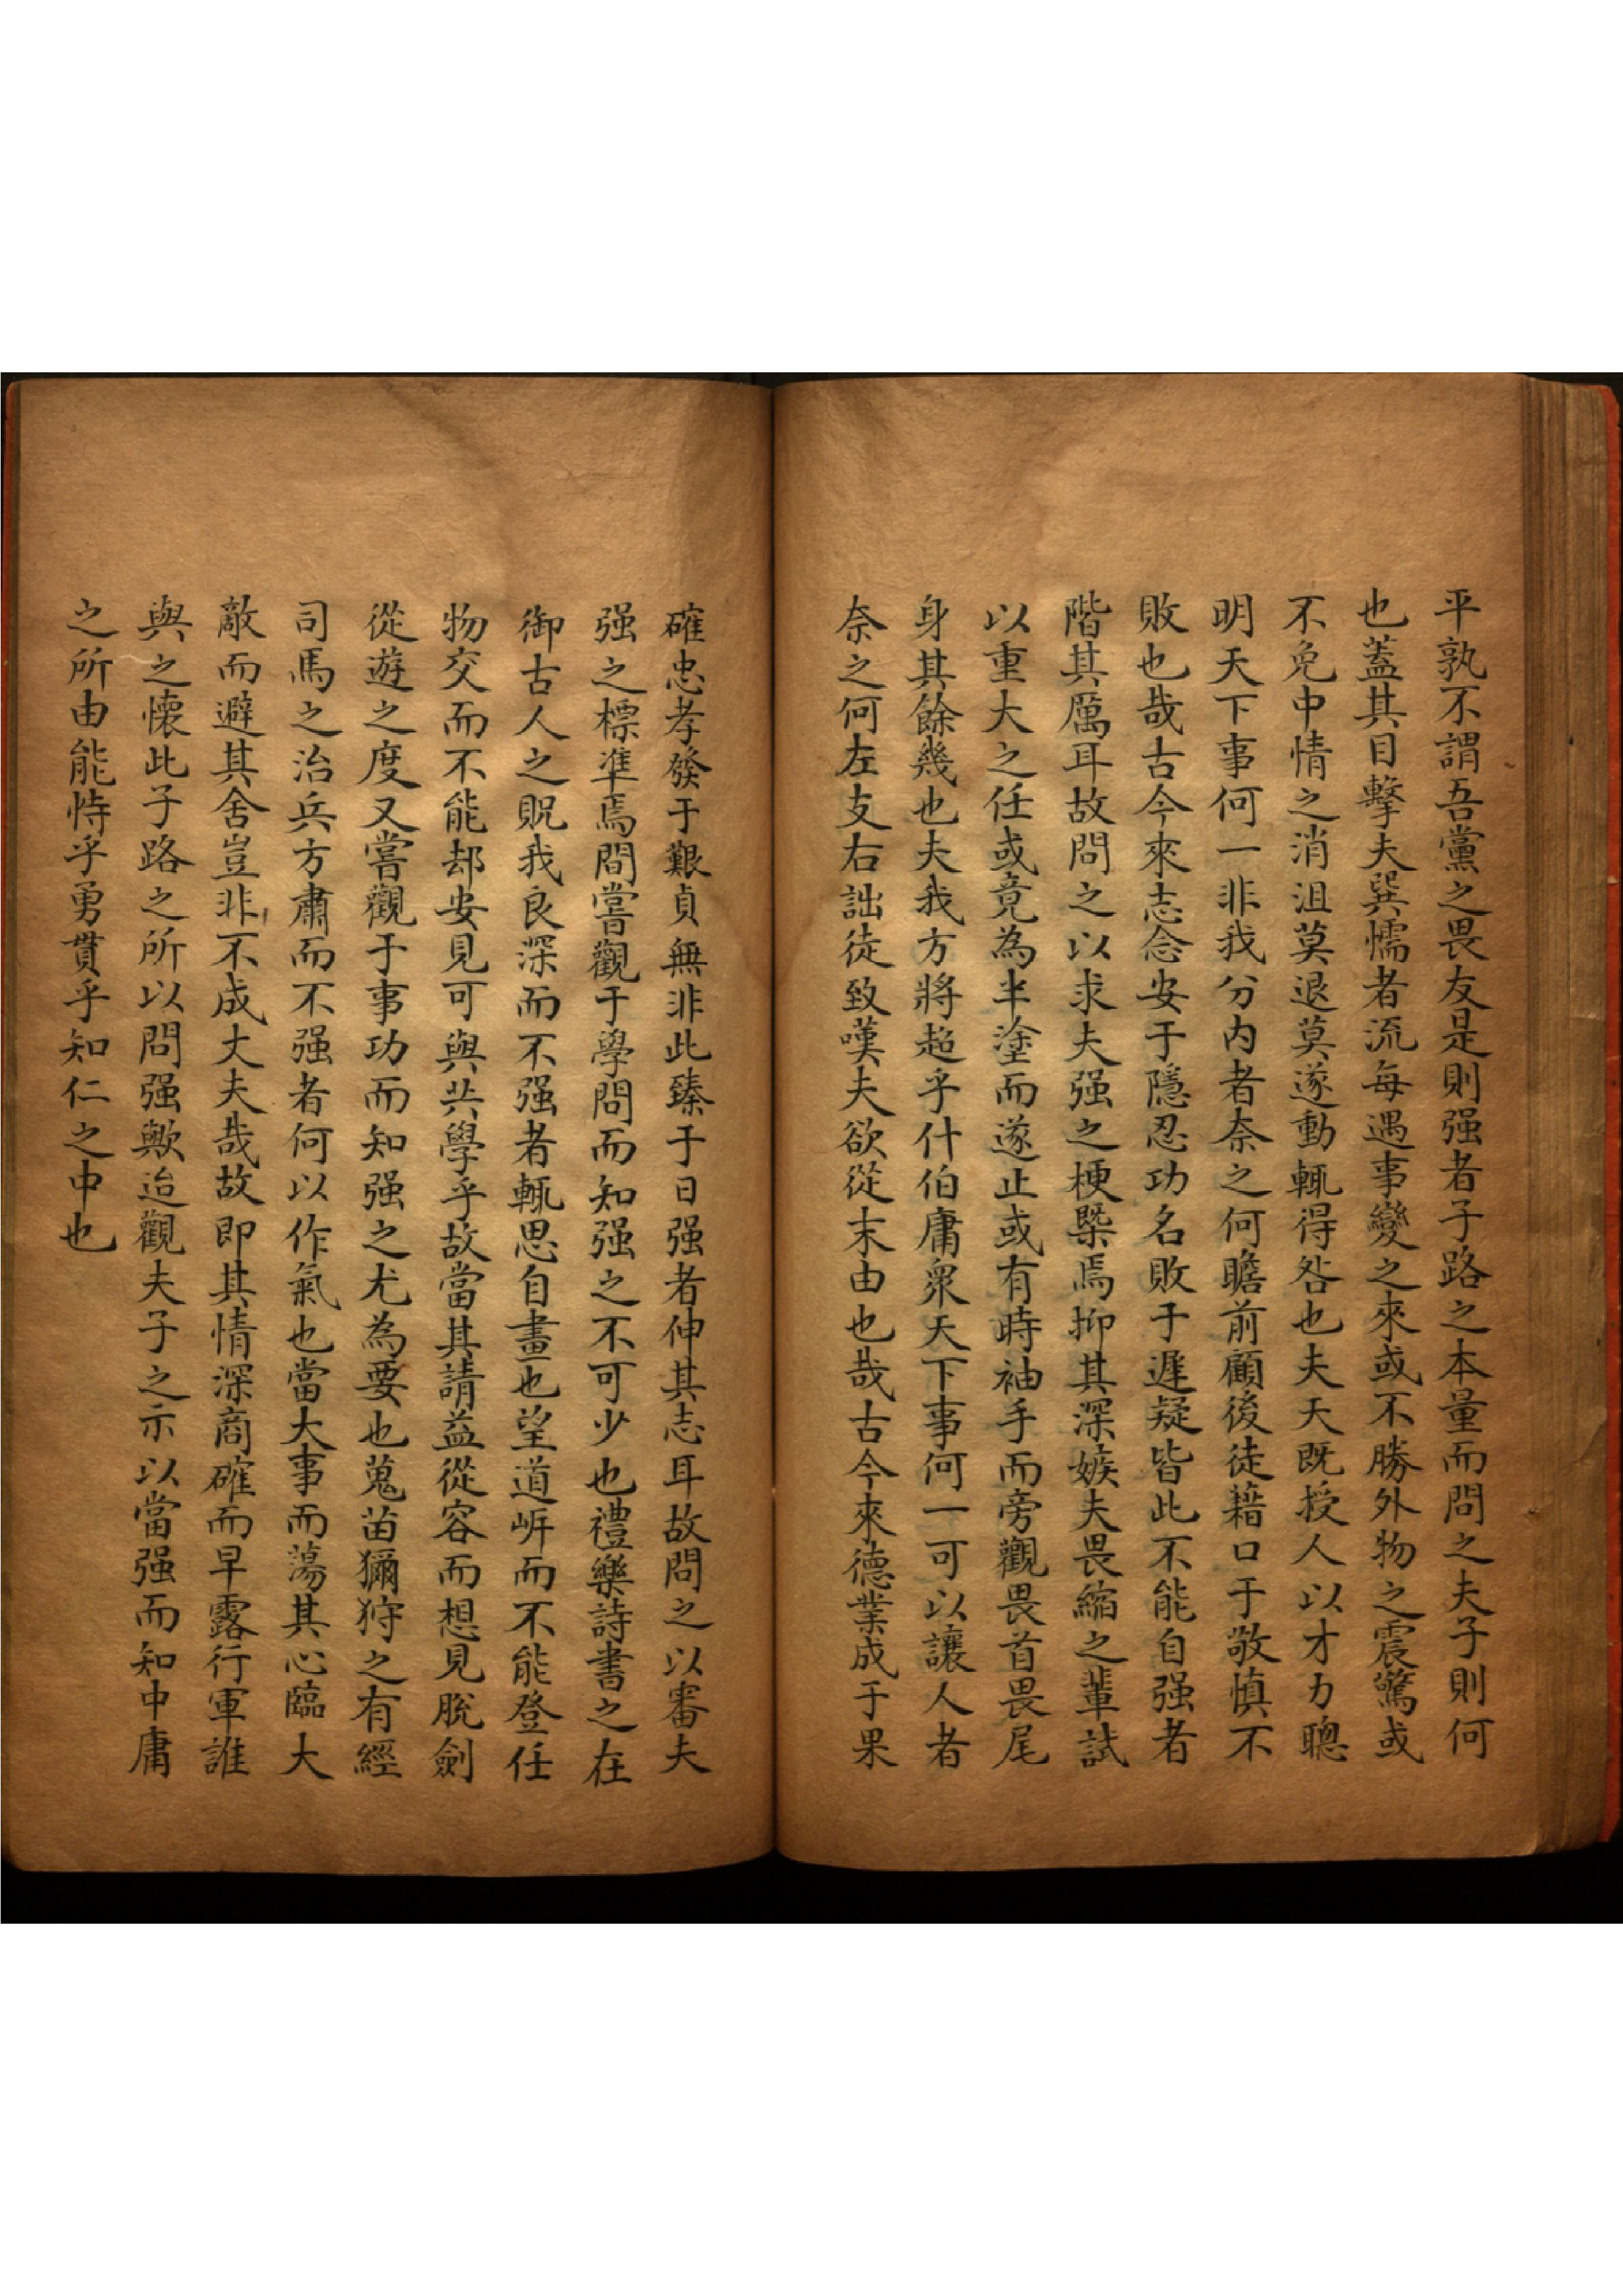 平孰不謂吾黨之畏友是則强者子路之本量而問之夫子則何
也蓋其目擊夫巽懦者流每遇事變之來或不勝外物之震驚或
不免中情之消沮莫退莫遂動輒得咎也夫天既授人以才力聰
明天下事何一非我分内者奈之何瞻前顧後徒藉口于敬慎不
敗也哉古今來志念安于隱忍功名敗于遲疑皆此不能自强者
階其厲耳故問之以求夫强之梗槩焉抑其深嫉夫畏縮之輩試
以重大之任或竟為半塗而遂止或有時袖手而旁觀畏首畏尾
身其餘幾也夫我方將超乎什伯庸衆天下事何一可以讓人者
奈之何左支右詘徒致嘆夫欲從末由也哉古今來德業成于果
確忠孝發于艱貞無非此臻于日强者伸其志耳故問之以審夫
强之標準焉間嘗觀于學問而知强之不可少也禮樂詩書之在
御古人之貺我良深而不强者輒思自畫也望道岸而不能登任
物交而不能却安見可與共學乎故當其請益從容而想見脫劍
從遊之度又嘗觀于事功而知强之尤為要也蒐苗獮狩之有經
司馬之治兵方肅而不强者何以作氣也當大事而蕩其心臨大
敵而避其舍豈非不成丈夫哉故即其情深商確而早露行軍誰
與之懷此子路之所以問强歟迨觀夫子之示以當强而知中庸
之所由能恃乎勇貫乎知仁之中也